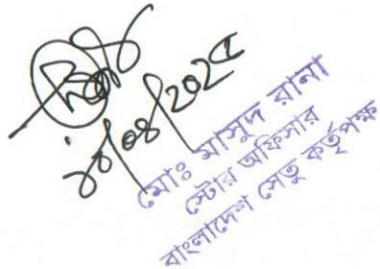 ১০/০৪/২০২৫
মোঃ মাসুদ রানা
স্টোর অফিসার
বাংলাদেশ সেতু কর্তৃপক্ষ